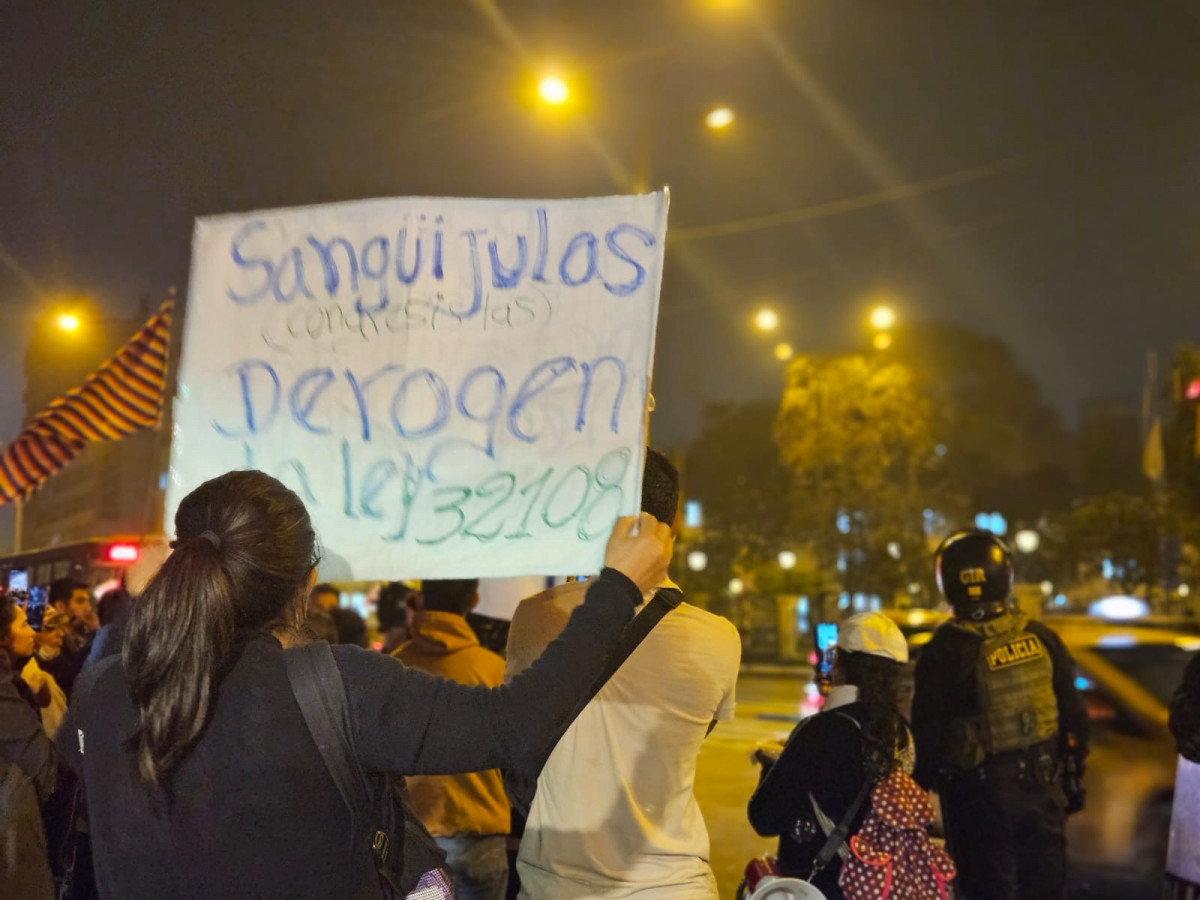 Sangüijulas
(congresistas)
Derogen
la ley 32108
GIR
POLICIA